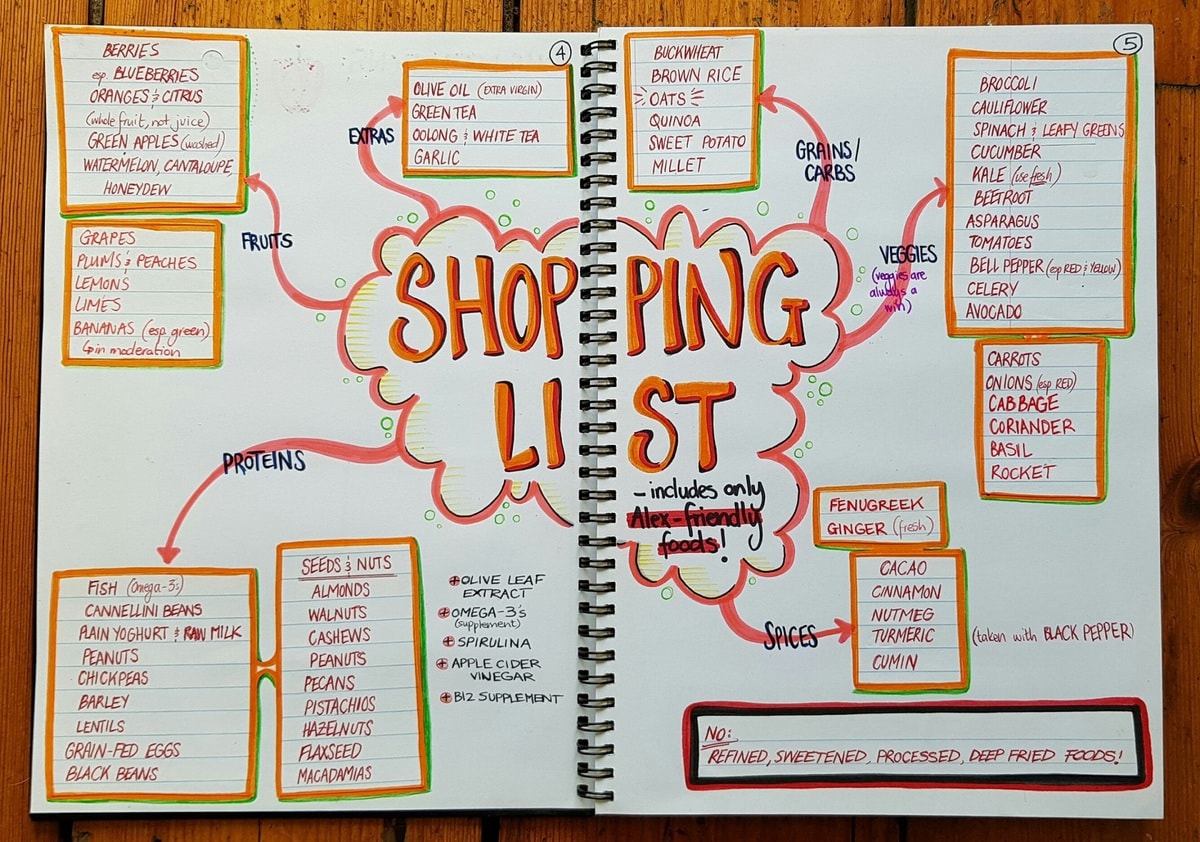 4
BERRIES
esp. BLUEBERRIES
ORANGES & CITRUS
(whole fruit, not juice)
GREEN APPLES (washed)
WATERMELON, CANTALOUPE,
HONEYDEW
GRAPES
PLUMS & PEACHES
LEMONS
LIMES
BANANAS (esp. green)
↳ in moderation
FRUITS
EXTRAS
OLIVE OIL (EXTRA VIRGIN)
GREEN TEA
OOLONG & WHITE TEA
GARLIC
SHOPPING
LIST
- includes only
Alex-friendly
foods!
PROTEINS
FISH (Omega-3's)
CANNELLINI BEANS
PLAIN YOGHURT & RAW MILK
PEANUTS
CHICKPEAS
BARLEY
LENTILS
GRAIN-FED EGGS
BLACK BEANS
SEEDS & NUTS
ALMONDS
WALNUTS
CASHEWS
PEANUTS
PECANS
PISTACHIOS
HAZELNUTS
FLAXSEED
MACADAMIAS
+ OLIVE LEAF
EXTRACT
+ OMEGA-3's
(supplement)
+ SPIRULINA
+ APPLE CIDER
VINEGAR
+ B12 SUPPLEMENT
5
BUCKWHEAT
BROWN RICE
OATS
QUINOA
SWEET POTATO
MILLET
GRAINS/
CARBS
VEGGIES
(veggies are
always a
win)
BROCCOLI
CAULIFLOWER
SPINACH & LEAFY GREENS
CUCUMBER
KALE (use fresh)
BEETROOT
ASPARAGUS
TOMATOES
BELL PEPPER (esp RED & YELLOW)
CELERY
AVOCADO
CARROTS
ONIONS (esp RED)
CABBAGE
CORIANDER
BASIL
ROCKET
SPICES
FENUGREEK
GINGER (fresh)
CACAO
CINNAMON
NUTMEG
TURMERIC (taken with BLACK PEPPER)
CUMIN
NO:
REFINED, SWEETENED, PROCESSED, DEEP FRIED FOODS!